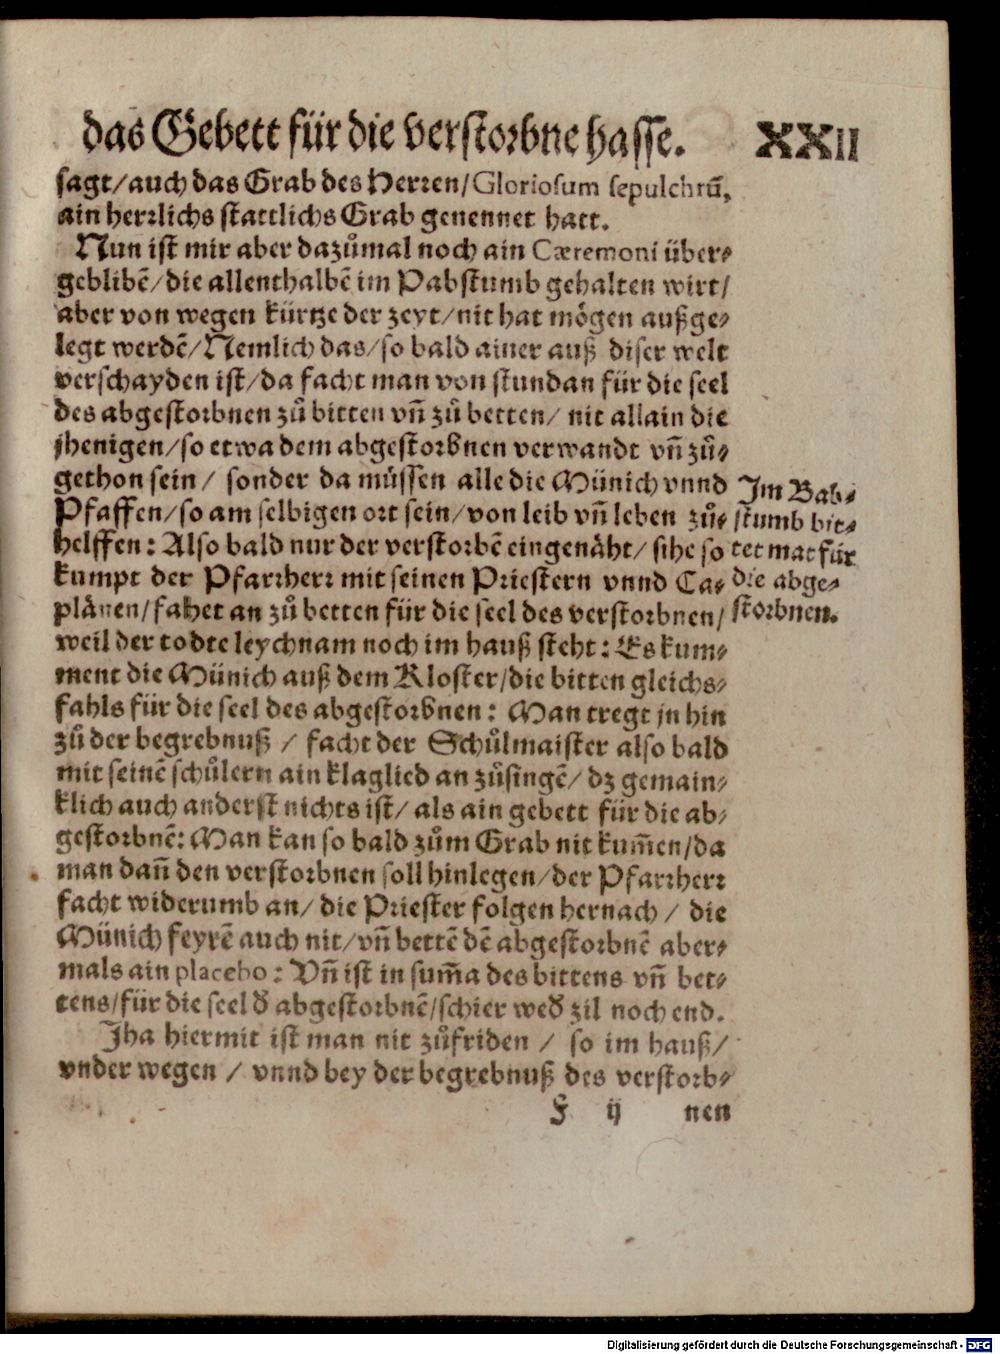 das Gebett für die verstorbne hasse. XXII
sagt/auch das Grab des Herren/Gloriosum sepulchrũ,
ain herrlichs stattlichs Grab genennet hatt.
Nun ist mir aber dazůmal noch ain Cæremoni über⸗
geblibẽ/die allenthalbẽ im Pabstumb gehalten wirt/
aber von wegen kürtze der zeyt/nit hat mögen außge⸗
legt werdẽ/Nemlich das/so bald ainer auß diser welt
verschayden ist/da facht man von stundan für die seel
des abgestorbnen zů bitten vñ zů betten/ nit allain die
jhenigen/so etwa dem abgestorbnen verwandt vñ zů⸗
gethon sein/ sonder da müssen alle die Münich vnnd
Pfaffen/so am selbigen ort sein/von leib vñ leben zů⸗
helffen: Also bald nur der verstorbẽ eingenäht/ sihe so
kumpt der Pfarrherr mit seinen Priestern vnnd Ca⸗
plänen/fahet an zů betten für die seel des verstorbnen/
Im Bab⸗
stumb bit⸗
tet mã für
die abge⸗
storbnen.
weil der todte leychnam noch im hauß steht: Es kum⸗
ment die Münich auß dem Kloster/die bitten gleichs⸗
fahls für die seel des abgestorbnen: Man tregt jn hin
zů der begrebnuß / facht der Schůlmaister also bald
mit seinẽ schůlern ain klaglied an zůsingẽ/ dz gemain⸗
klich auch anderst nichts ist/ als ain gebett für die ab⸗
gestorbnẽ: Man kan so bald zům Grab nit kum̃en/da
man dañ den verstorbnen soll hinlegen/der Pfarrherr
facht widerumb an/ die Priester folgen hernach / die
Münich feyrẽ auch nit/vñ bettẽ dẽ abgestorbnẽ aber⸗
mals ain placebo: Vñ ist in sum̃a des bittens vñ bet⸗
tens/für die seel d̄ abgestorbnẽ/schier wed̄ zil noch end.
Jha hiermit ist man nit zůfriden / so im hauß/
vnder wegen / vnnd bey der begrebnuß des verstorb⸗
F ij nen
Digitalisierung gefördert durch die Deutsche Forschungsgemeinschaft - DFG